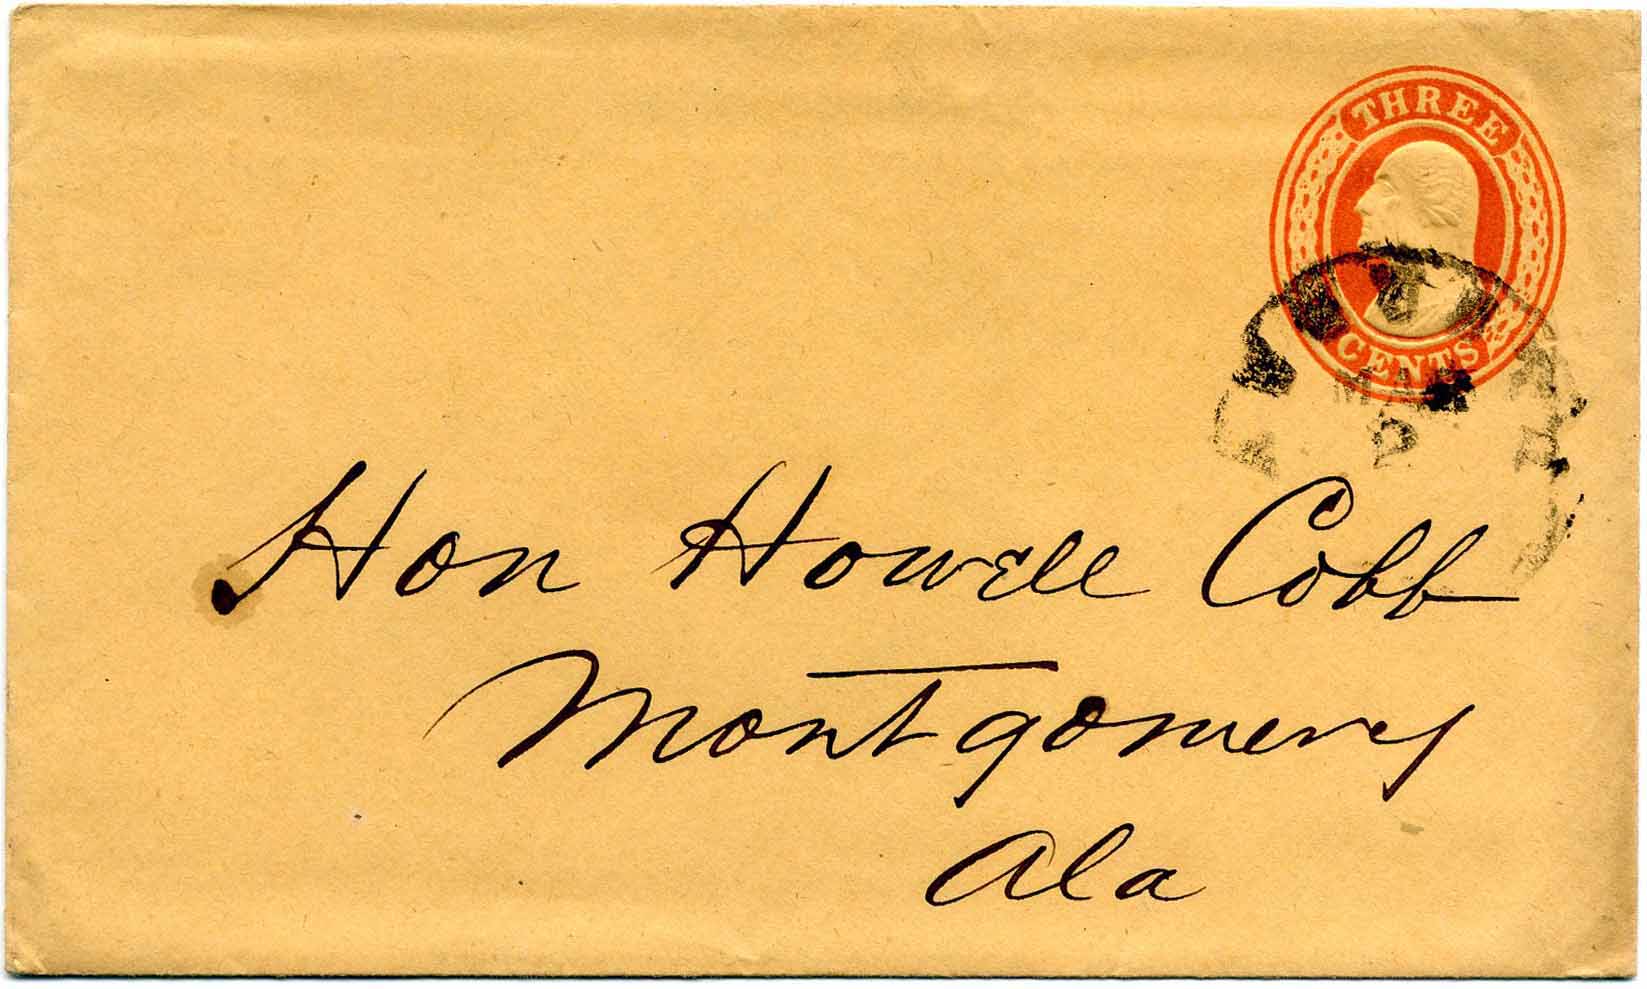 THREE
CENTS
MAR
Hon Howell Cobb
Montgomery
Ala